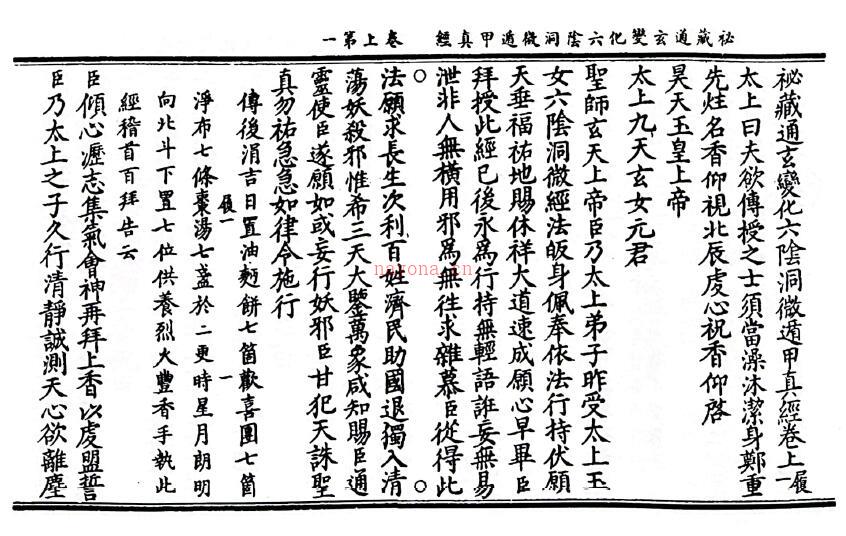 祕藏通玄變化六陰洞微遁甲真經　卷上第一
祕藏通玄變化六陰洞微遁甲真經卷上　履一
太上曰夫欲傳授之士須當澡沐潔身鄭重
先炷名香仰視北辰虔心祝香仰啓
昊天玉皇上帝
太上九天玄女元君
聖師玄天上帝臣乃太上弟子昨受太上玉
女六陰洞微經法皈身佩奉依法行持伏願
天垂福祐地賜休祥大道速成願心早畢臣
拜授此經已後永爲行持無輕語誑妄無易
泄非人無橫用邪爲無徃求雜慕臣從得此
法願求長生次利百姓濟民助國退獨入清
蕩妖殺邪惟希三天大鑒萬象咸知賜臣通
靈使臣遂願如或妄行妖邪臣甘犯天誅聖
真勿祐急急如律令施行
履一　一
傳後涓吉日置油麵餅七箇歡喜團七箇
淨布七條棗湯七盞於二更時星月朗明
向北斗下置七位供養烈火豐香手執此
經稽首百拜告云
臣傾心瀝志集氣會神再拜上香以虔盟誓
臣乃太上之子久行清靜誠測天心欲離塵
nayona.cn